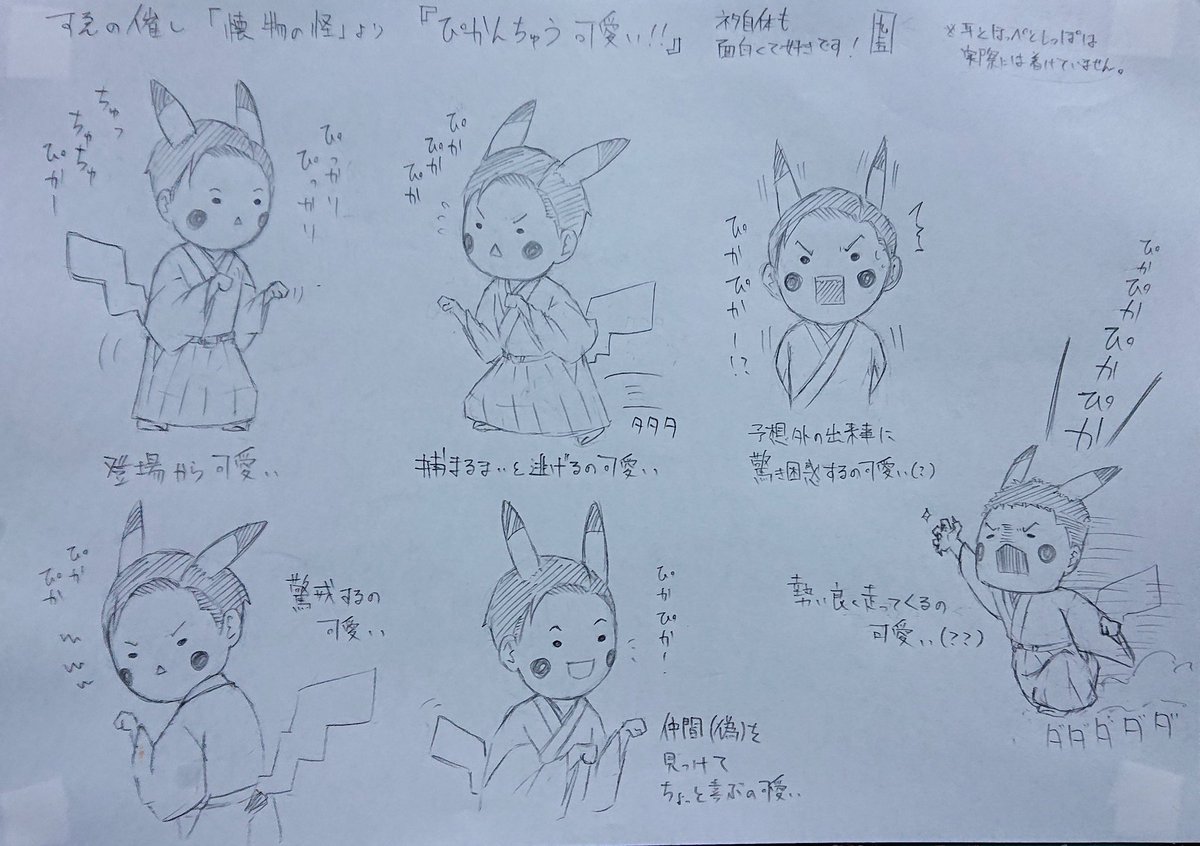 すゑの催し「懐物の怪」より
『ぴかんちゅう可愛い!!』
ネタ自体も
面白くて好きです!
※耳とほっぺとしっぽは
実際には着けていません。
ちゅっ
ちゅちゅ
ぴかー
ぴっかり
ぴっかり
登場から可愛い
ぴか
ぴか
ぴか
タタタ
捕まるまいと逃げるの可愛い
ぴかぴかー!?
予想外の出来事に
驚き困惑するの可愛い(?)
ぴか
ぴか
警戒するの
可愛い
ぴかぴか!
仲間(偽)を
見つけて
ちょっと喜ぶの可愛い
ぴかぴかぴかぴか
勢い良く走ってくるの
可愛い(??)
ダダダダダ